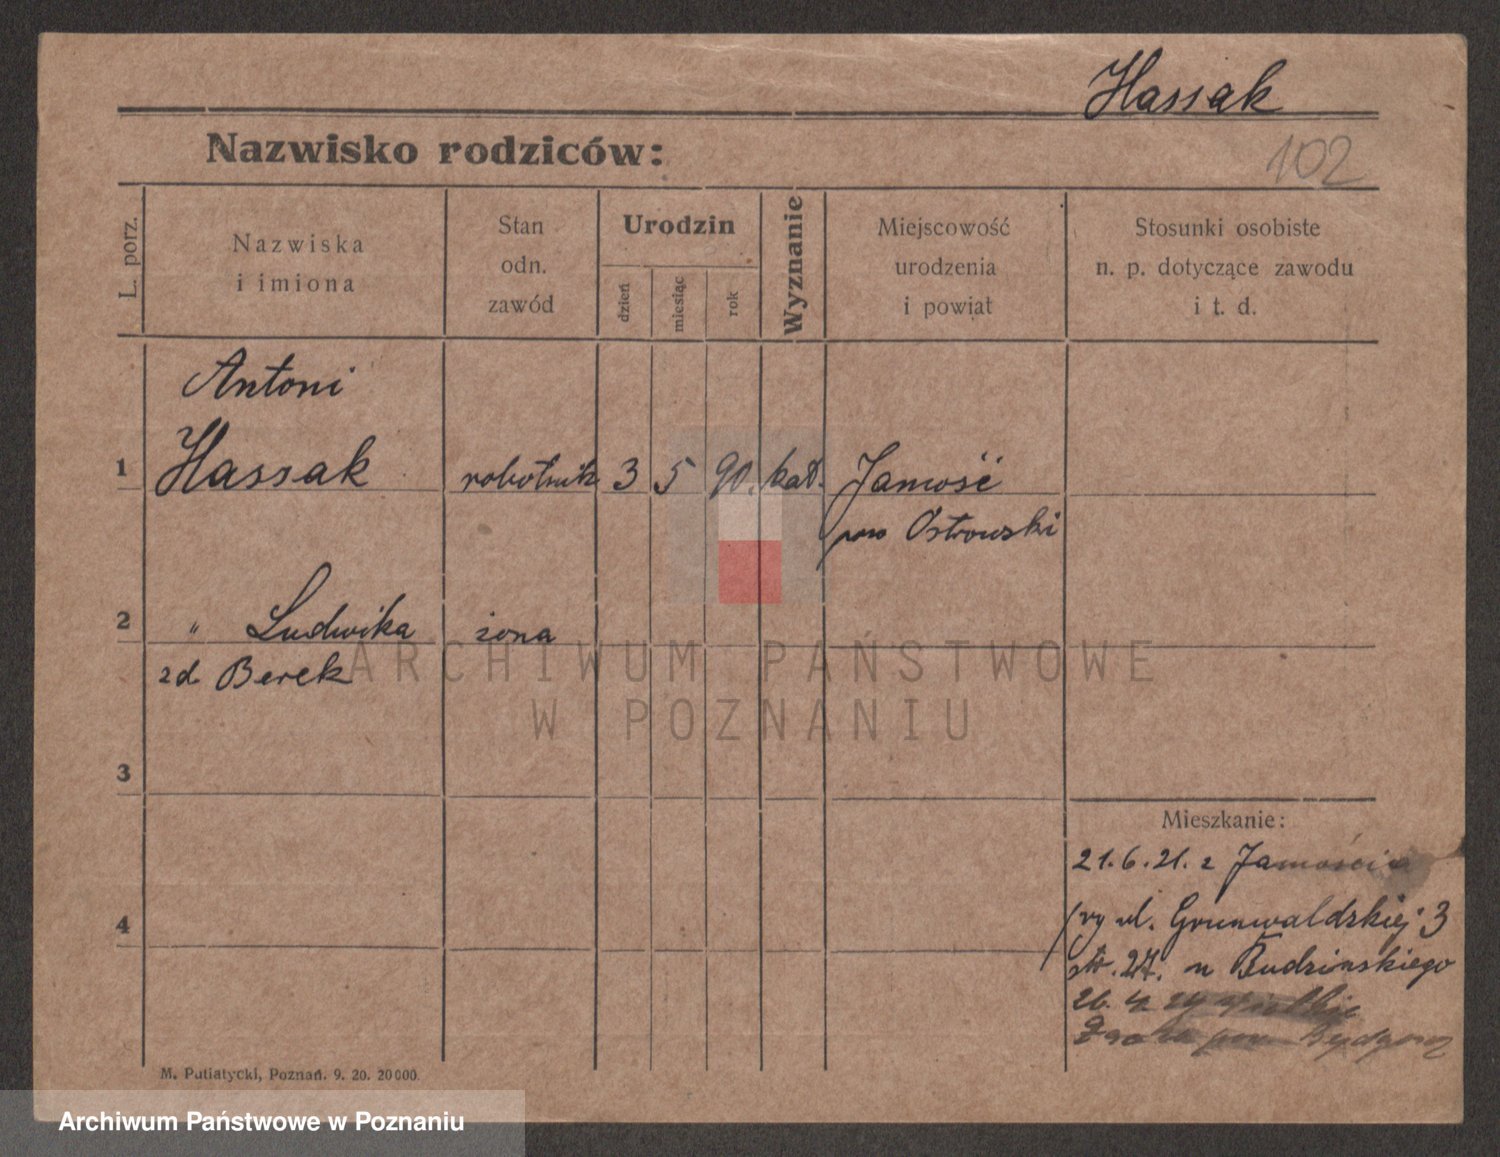 Hassak
102
Nazwisko rodziców:
L. porz.
Nazwiska
i imiona
Stan
odn.
zawód
Urodzin
dzień
miesiąc
rok
Wyznanie
Miejscowość
urodzenia
i powiat
Stosunki osobiste
n. p. dotyczące zawodu
i t. d.
Antoni
1 Hassak robotnik 3 5 90. kat. Jamość
pow Ostrowski
2 " Ludwika żona
zd Berek
ARCHIWUM PAŃSTWOWE
W POZNANIU
3
Mieszkanie:
21.6.21. z
4
ul. Grunwaldzkiej 3
str. 27. u Budzinskiego
26. 4
pow Bydgosz
M. Putiatycki, Poznań. 9. 20. 20000.
Archiwum Państwowe w Poznaniu